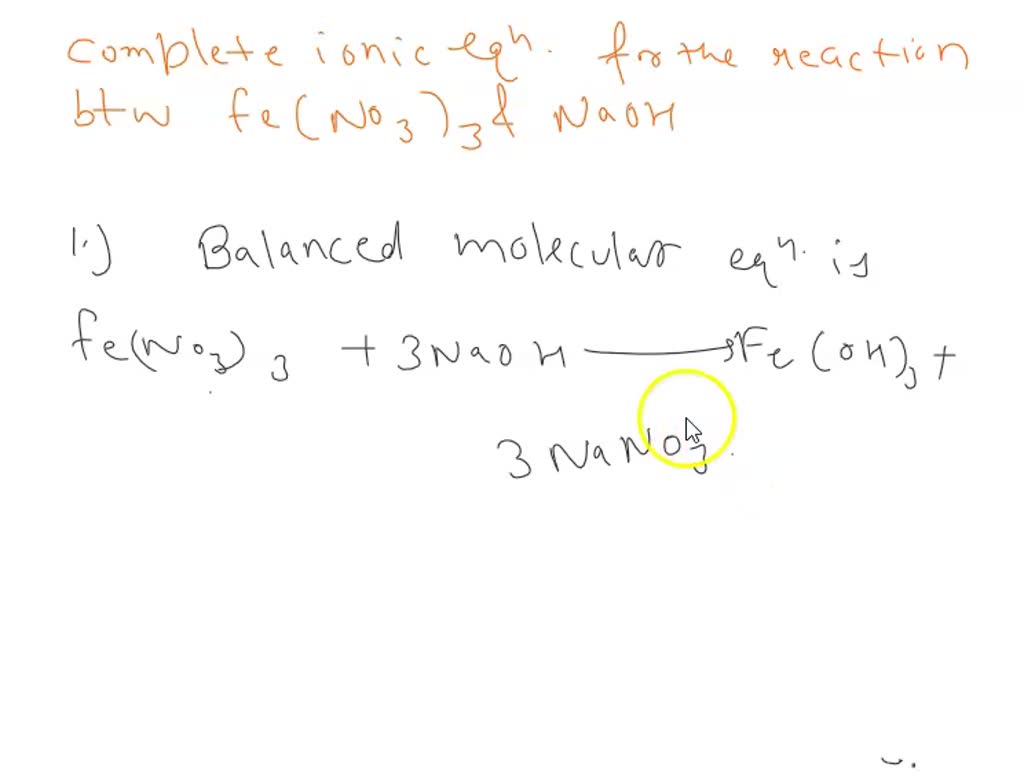 complete ionic eqn. for the reaction
btw fe(NO3)3 & NaOH
1.) Balanced molecular eqn. is
fe(NO3)3 + 3NaOH → Fe(OH)3 +
3NaNO3